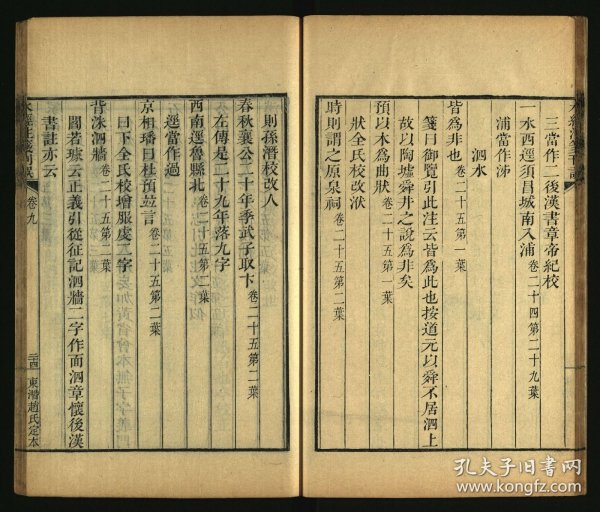 三當作二後漢書章帝紀校
一水西逕須昌城南入浦卷二十四第二十九葉
浦當作泲
泗水
皆爲非也卷二十五第一葉
箋曰御覽引此注云皆爲此也按道元以舜不居泗上
故以陶墟舜井之說爲非矣
預以本爲曲狀卷二十五第一葉
狀全氏校改洑
時則謂之原泉祠卷二十五第二葉
則孫潛校改人
春秋襄公二十年季武子取卞卷二十五第二葉
左傳是二十九年落九字
西南逕魯縣北卷二十五第二葉
逕當作過
京相璠曰杜預竝言卷二十五第二葉
曰下全氏校增服虔二字
背洙泗牆卷二十五第二葉
閻若璩云正義引從征記泗牆二字作面泗章懷後漢
書註亦云
卷九
三十四
東潛趙氏定本
孔夫子旧书网
www.kongfz.com